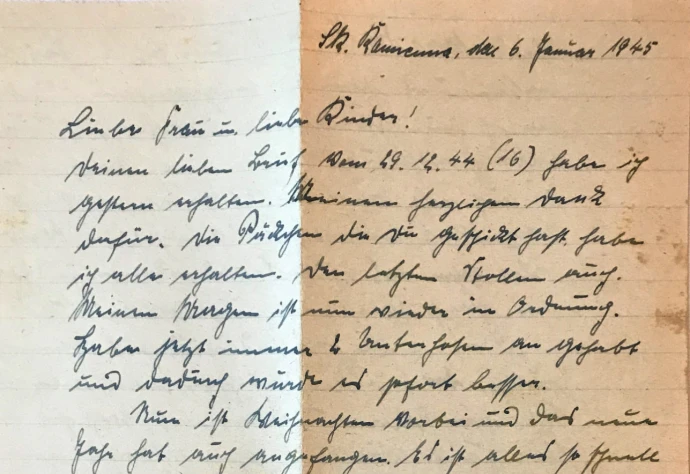 Sk. Kamienna, den 6. Januar 1945
Liebe Frau u. liebe Kinder!
Deinen lieben Brief vom 29.12.44 (16) habe ich
gestern erhalten. Meinen herzlichen Dank
dafür. Die Päckchen die Du geschickt hast, habe
ich alle erhalten. Den letzten Stollen auch.
Meinen Magen ist nun wieder in Ordnung.
Habe jetzt immer 2 Unterhosen an gehabt
und dadurch wurde es sofort besser.
Nun ist Weihnachten vorbei und das neue
Jahr hat auch angefangen. Es ist alles so schnell